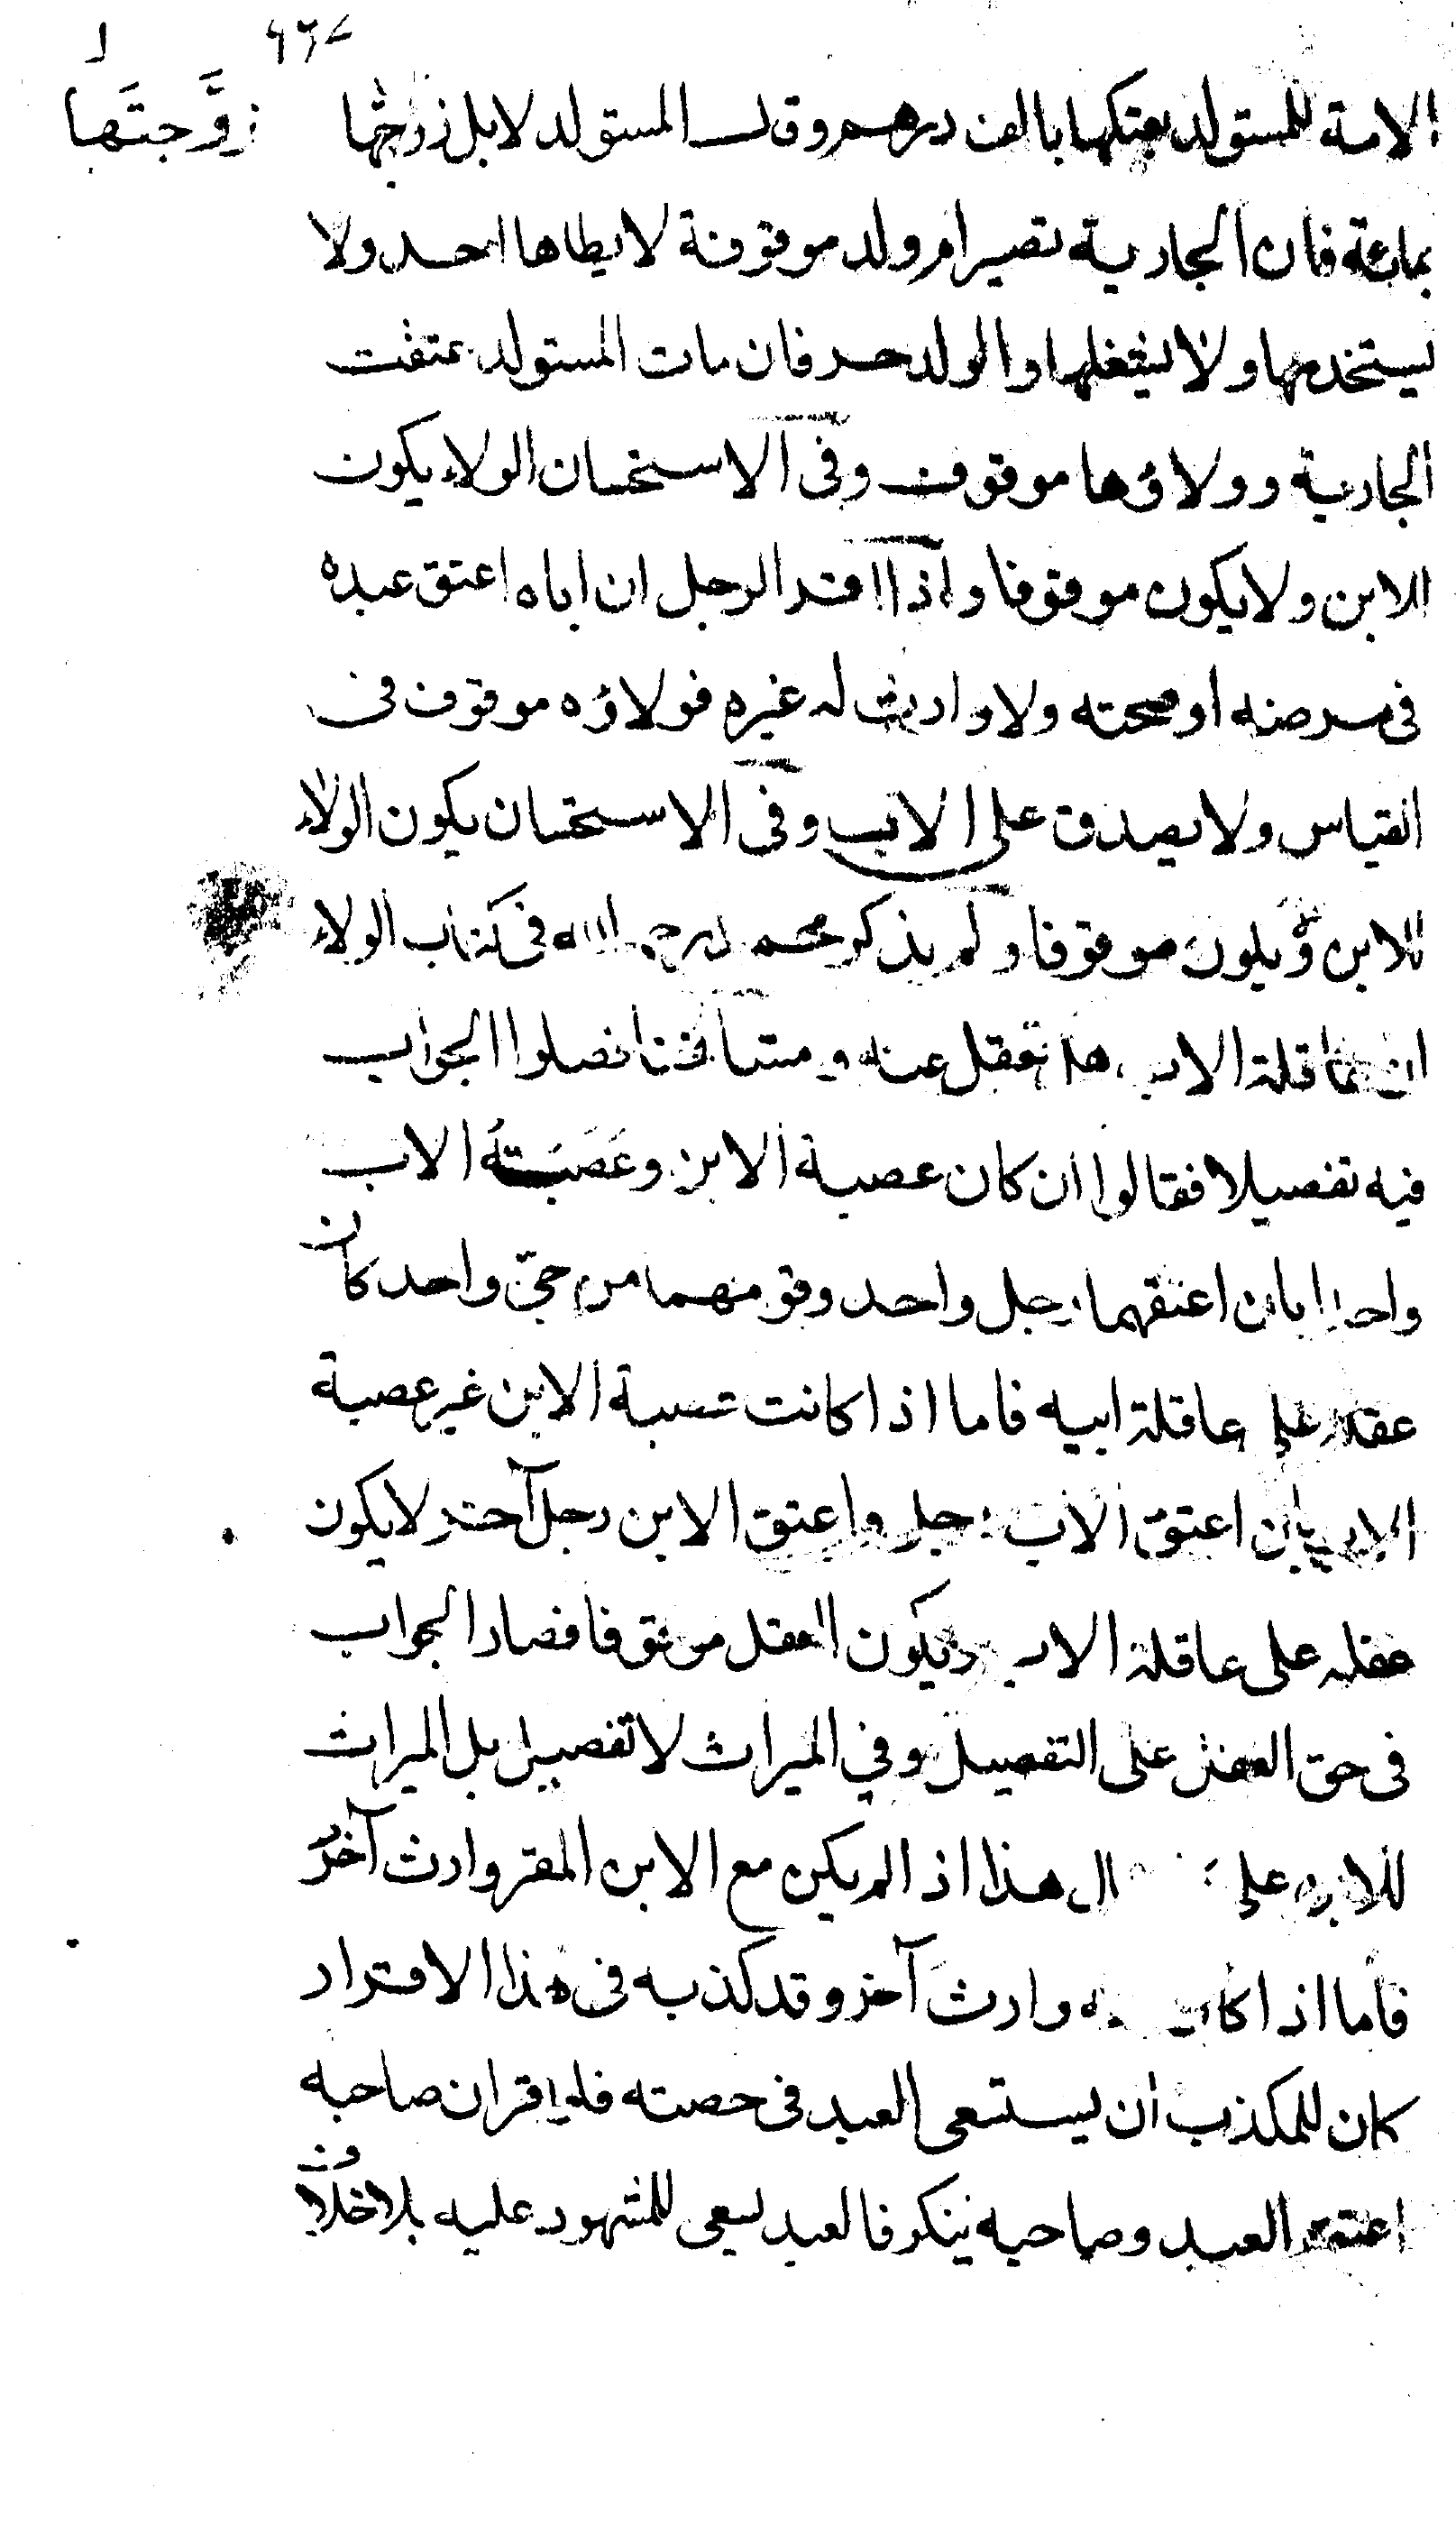 الامة للمستولد بعتكها بالف درهم وقال المستولد لا بل زوجتها زَوَّجتَها
بمائة فان الجارية تصير ام ولد موقوفة لا يطاها احد ولا
يستخدمها ولا يشغلها والولد حر فان مات المستولد عتقت
الجارية وولاؤها موقوف وفى الاستحسان الولاء يكون
للابن ولا يكون موقوفا واذا اقر الرجل ان اباه اعتق عبده
فى مرضه او صحته ولا وارث له غيره فولاؤه موقوف فى
القياس ولا يصدق على الاب وفى الاستحسان يكون الولاء
للابن ويكون موقوفا ولم يذكر محمد رحمه الله فى كتاب الولاء
ان عاقلة الاب هل تعقل عنه ومشائخنا فصلوا الجواب
فيه تفصيلا فقالوا ان كان عصبة الابن وعَصَبَتهُ الاب
واحدا بان اعتقهما رجل واحد وقومهما من حىّ واحد كان
عقله على عاقلة ابيه فاما اذا كانت عصبة الابن غير عصبة
الاب بان اعتق الاب رجل واعتق الابن رجل آخر لا يكون
عقله على عاقلة الاب ويكون العقل موقوفا فصار الجواب
فى حق العقل على التفصيل وفي الميراث لا تفصيل بل الميراث
للابن على هذا اذا لم يكن مع الابن المقر وارث آخر
فأما اذا كان وارث آخر وقد كذبه فى هذا الاقرار
كان للمكذب ان يستسعى العبد فى حصته اقر ان صاحبه
اعتق العبد وصاحبه ينكر فالعبد يسعى للمشهود عليه بلا خلاف